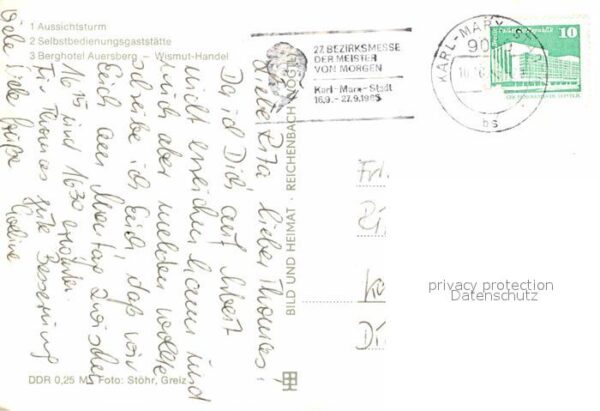 1 Aussichtsturm
2 Selbstbedienungsgaststätte
3 Berghotel Auersberg – Wismut-Handel
Liebe Rita, lieber Thomas!
Da ich Dich auf Arbeit
nicht erreichen kann und
mich aber melden wollte
schreibe ich Euch, daß wir
Euch am Montag zwischen
16¹⁵ und 16³⁰ erwarten.
Für Thomas gute Besserung
Viele liebe Grüße
BILD UND HEIMAT · REICHENBACH (VOGTL)
DDR 0,25 M Foto: Stöhr, Greiz
27. BEZIRKSMESSE
DER MEISTER
VON MORGEN
Karl-Marx-Stadt
16.9.-27.9.1985
KARL-MARX-ST
90
bs
10
Kar
privacy protection
Datenschutz